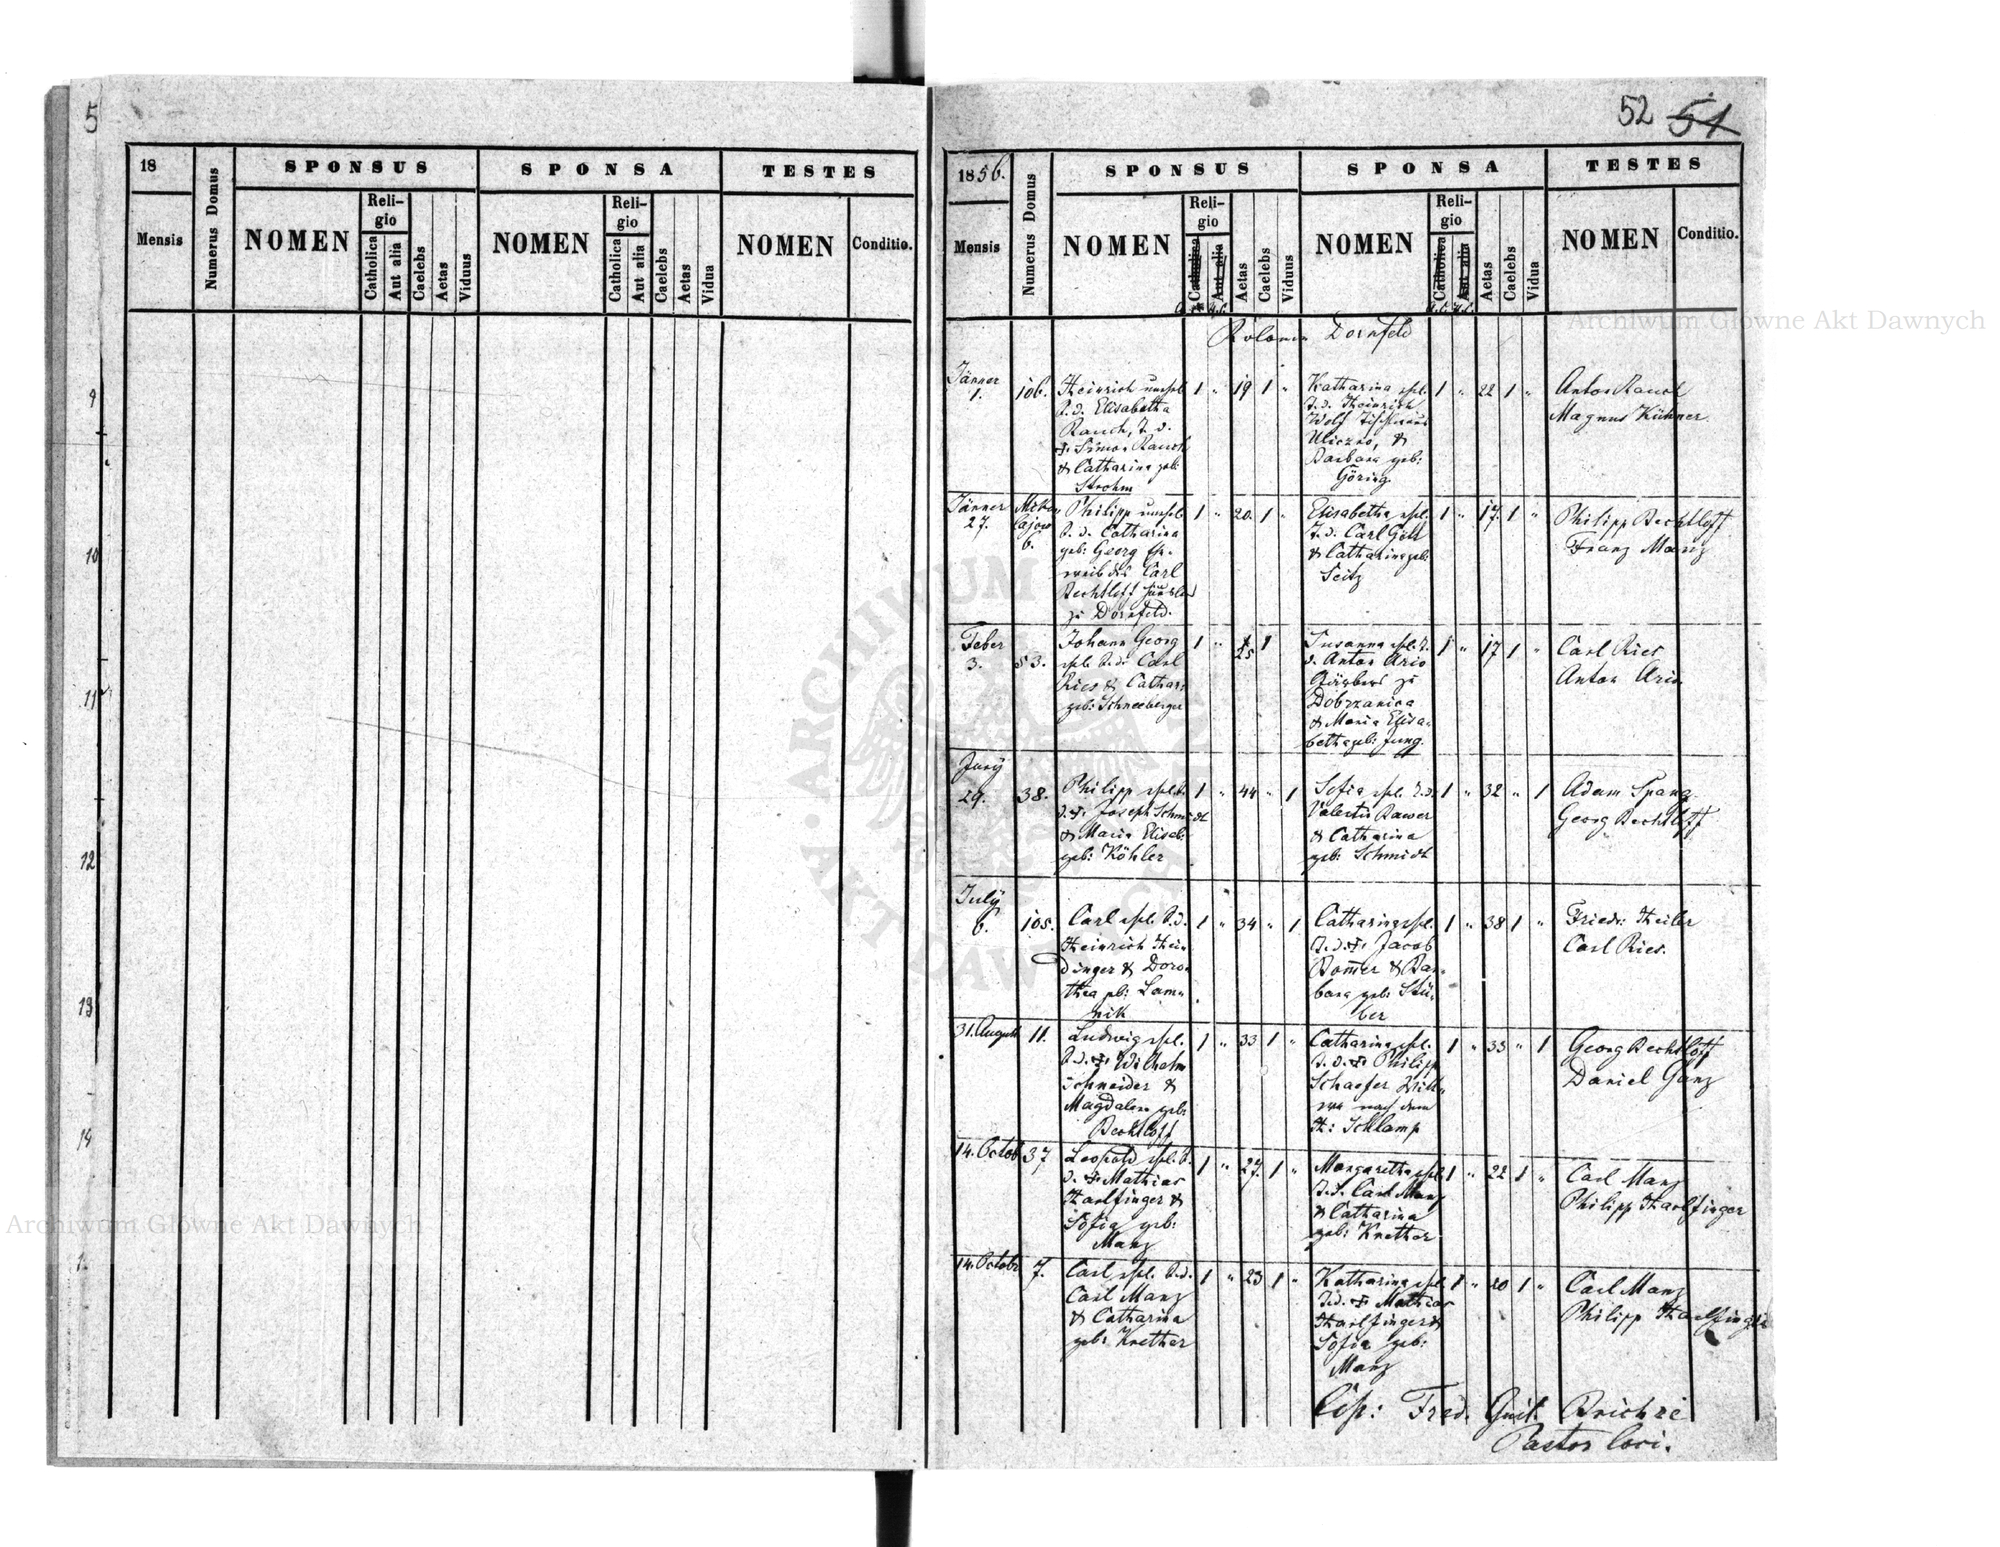 5
18
Mensis
Numerus Domus
SPONSUS
NOMEN
Reli-
gio
Catholica
Aut alia
Caelebs
Aetas
Viduus
SPONSA
NOMEN
Reli-
gio
Catholica
Aut alia
Caelebs
Aetas
Vidua
TESTES
NOMEN
Conditio.
9
10
11
12
13
14
52 51
1856.
Mensis
Numerus Domus
SPONSUS
NOMEN
Reli-
gio
Catholica
Aut alia
Aetas
Caelebs
Viduus
SPONSA
NOMEN
Reli-
gio
Catholica
Aut alia
Aetas
Caelebs
Vidua
TESTES
NOMEN
Conditio.
Dornfeld
Jänner
1.
106.
Heinrich unehel.
S. d. Elisabetha
Rauch, T. d.
Simon Rauch
& Catharina geb:
Strohm
1 " 19 1 "
Katharina ehel.
T. d. Heinrich
Wolf
Uliczno, &
Barbara geb:
Göring.
1 " 22 1 "
Anton Rauch
Magnus Kühner.
Jänner
27.
6.
Philipp unehel.
S. d. Catharina
geb: Georg
weib des Carl
Bechtloff
zu Dornfeld.
1 " 20 1 "
Elisabetha ehel.
T. d. Carl
& Catharina geb:
Seitz
1 " 17 1 "
Philipp Bechtloff
Franz Manz
Feber
3.
53.
Johann Georg
ehel. S. d. Carl
Ries & Cathar:
geb: Schneeberger
1 " 25 1
Susanna ehel. T.
d. Anton Ario
zu
Dobrzanica
& Maria Elisa-
betha geb: Jung.
1 " 17 1 "
Carl Ries
Anton Ario
Juny
29.
38.
Philipp ehel. S.
d. Joseph Schmidt
& Maria Elisab:
geb: Köhler
1 " 44 " 1
Sofia ehel. T. d.
Valentin Bawer
& Catharina
geb: Schmidt
1 " 32 " 1
Adam Spang.
Georg Bechtloff
July
6.
105.
Carl ehel. S. d.
Heinrich Hein-
dinger & Doro-
thea geb: Lam-
nik
1 " 34 " 1
Catharina ehel.
T. d. Jacob
Bom̄er & Bar-
bara geb: Stü-
ber
1 " 38 1 "
Friedr: Heiler
Carl Ries.
31. August
11.
Ludwig ehel.
S. d. Wilhelm
Schneider &
Magdalena geb:
Bechtloff
1 " 33 1 "
Catharina ehel.
T. d. Philipp
Schaefer Witt-
we nach dem
Schlamp
1 " 33 " 1
Georg Bechtloff
Daniel Ganz
14. Octob
37
Leopold ehel. S.
d. Mathias
Harlfinger &
Sofia geb:
Manz
1 " 27. 1 "
Margaretha ehel.
T. d. Carl Manz
& Catharina
geb: Knether
1 " 22 1 "
Carl Manz
Philipp Harlfinger
14. Octobr
7.
Carl ehel. S. d.
Carl Manz
& Catharina
geb: Knether
1 " 23 1 "
Katharina ehel.
T. d. Mathias
Harlfinger &
Sofia geb:
Manz
1 " 20 1 "
Carl Manz
Philipp Harlfinger
Fred. Guil.
Pastor loci.
Archiwum Główne Akt Dawnych
Archiwum Główne Akt Dawnych